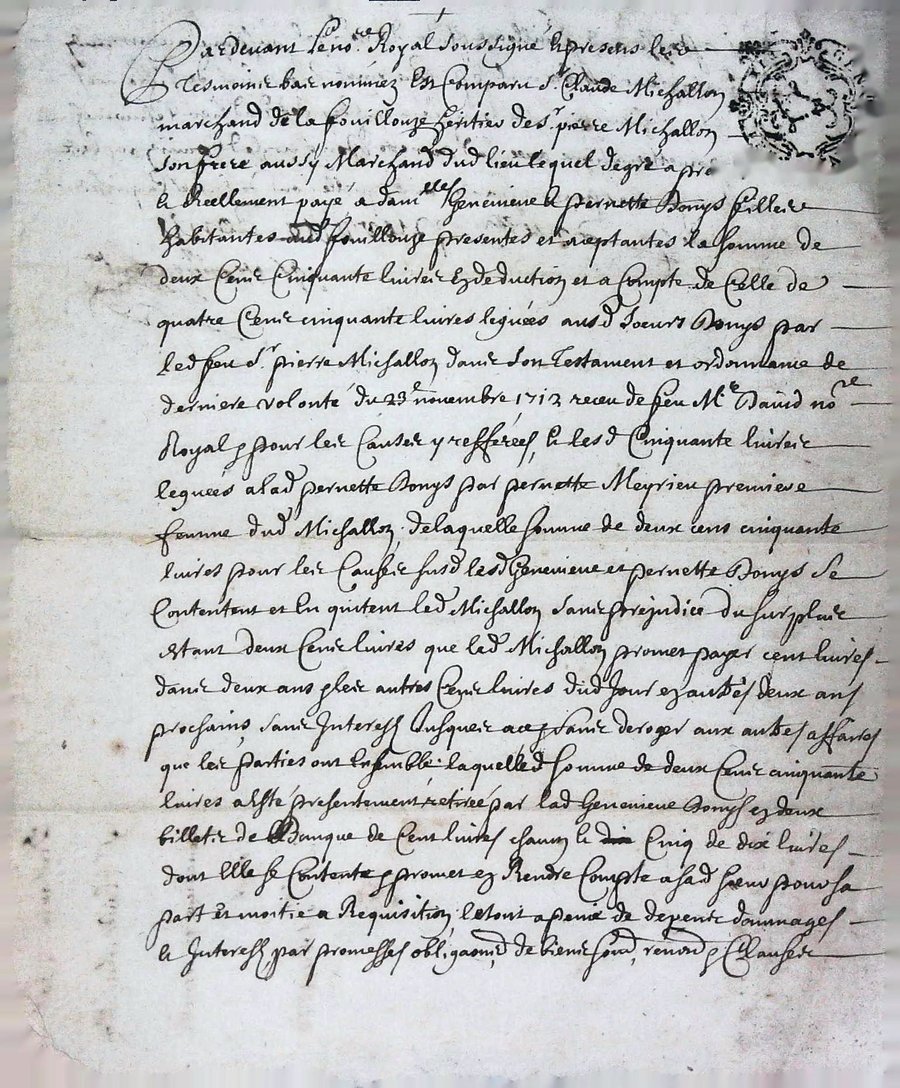 Pardevant Le no.re Royal soussigné & presens les
Tesmoins bas nommez Est Comparu Sr. Claude Michallon
marchand de la fouillouze heritier de Sr. pierre Michallon
son frere aussy Marchand dud lieu lequel de gré a
& Reellement payé a dam.lles Genevieve & pernette Bonys filles
habitantes aud fouillouze presentes et aceptantes la somme de
deux Cens Cinquante livres En deduction et a Compte de Celle de
quatre Cens cinquante livres leguées ausd Soeurs Bonys par
led feu Sr. pierre Michallon dans son Testament et ordonnance de
derniere volonté du 23e novembre 1712 receu de feu Me David no.re
Royal & pour les Causes y refferées, & les d Cinquante livres
leguées a lad pernette Bonys par pernette Meyrieu premiere
femme dud Michallon de laquelle somme de deux cens cinquante
livres pour les Causes susd lesd Genevieve et pernette Bonys se
Contentent et En quitent led Michallon sans prejudice du surplus
estant deux Cens livres que led Michallon promet payer cent livres
dans deux ans & les autres Cens livres dud Jour en autres deux ans
prochains sans Interest Jusques a ce & sans deroger aux autres affaires
que les parties ont Ensemble laquelled somme de deux Cens cinquante
livres a Esté presentement retirée par lad Genevieve Bonys en deux
billets de Banque de Cent livres chacun & Cinq de dix livres
dont Elle se Contente & promet en Rendre Compte a sad soeur pour sa
part et moitié a Requisition, le tout a peine de depens dommages
& Interest par promesses obligaon.s de biens soud, renond & Clauses